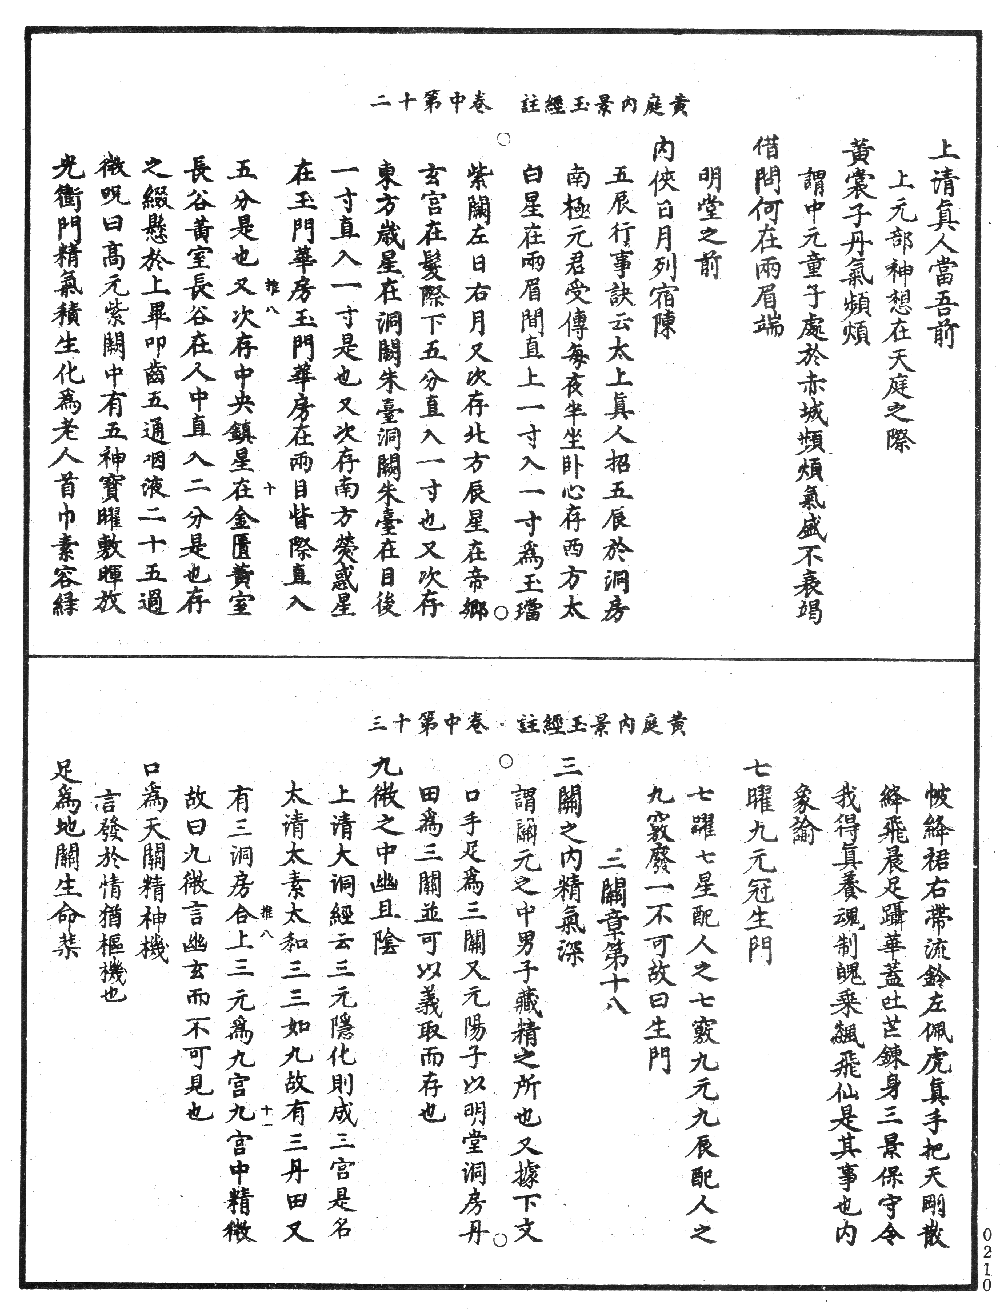 黃庭內景玉經註　卷中第十二
上清眞人當吾前
上元部神想在天庭之際
黃裳子丹氣頻煩
謂中元童子處於赤城頻煩氣盛不衰竭
借問何在兩眉端
明堂之前
內俠日月列宿陳
五辰行事訣云太上眞人招五辰於洞房
南極元君受傳每夜半坐卧心存西方太
白星在兩眉間直上一寸入一寸爲玉璫
紫闕左日右月又次存北方辰星在帝鄉
玄宮在髮際下五分直入一寸也又次存
東方歲星在洞闕朱臺洞闕朱臺在目後
一寸直入一寸是也又次存南方熒惑星
在玉門華房玉門華房在兩目眥際直入
五分是也又次存中央鎮星在金匱黃室
長谷黃室長谷在人中直入二分是也存
之綴懸於上畢叩齒五通咽液二十五過
微呪曰高元紫闕中有五神寶曜敷暉放
光衝門精氣積生化爲老人首巾素容綠
推八
十
黃庭內景玉經註　卷中第十三
帔絳裙右帶流鈴左佩虎眞手把天剛散
絳飛晨足躡華蓋吐芒鍊身三景保守令
我得眞養魂制魄乘飆飛仙是其事也內
象諭
七曜九元冠生門
七躍七星配人之七竅九元九辰配人之
九竅廢一不可故曰生門
三關章第十八
三關之內精氣深
謂關元之中男子藏精之所也又據下文
口手足爲三關又元陽子以明堂洞房丹
田爲三關並可以義取而存也
九微之中幽且陰
上清大洞經云三元隱化則成三宮是名
太清太素太和三三如九故有三丹田又
有三洞房合上三元爲九宮九宮中精微
故曰九微言幽玄而不可見也
口爲天關精神機
言發於情猶樞機也
足爲地關生命棐
推八
十一
0210